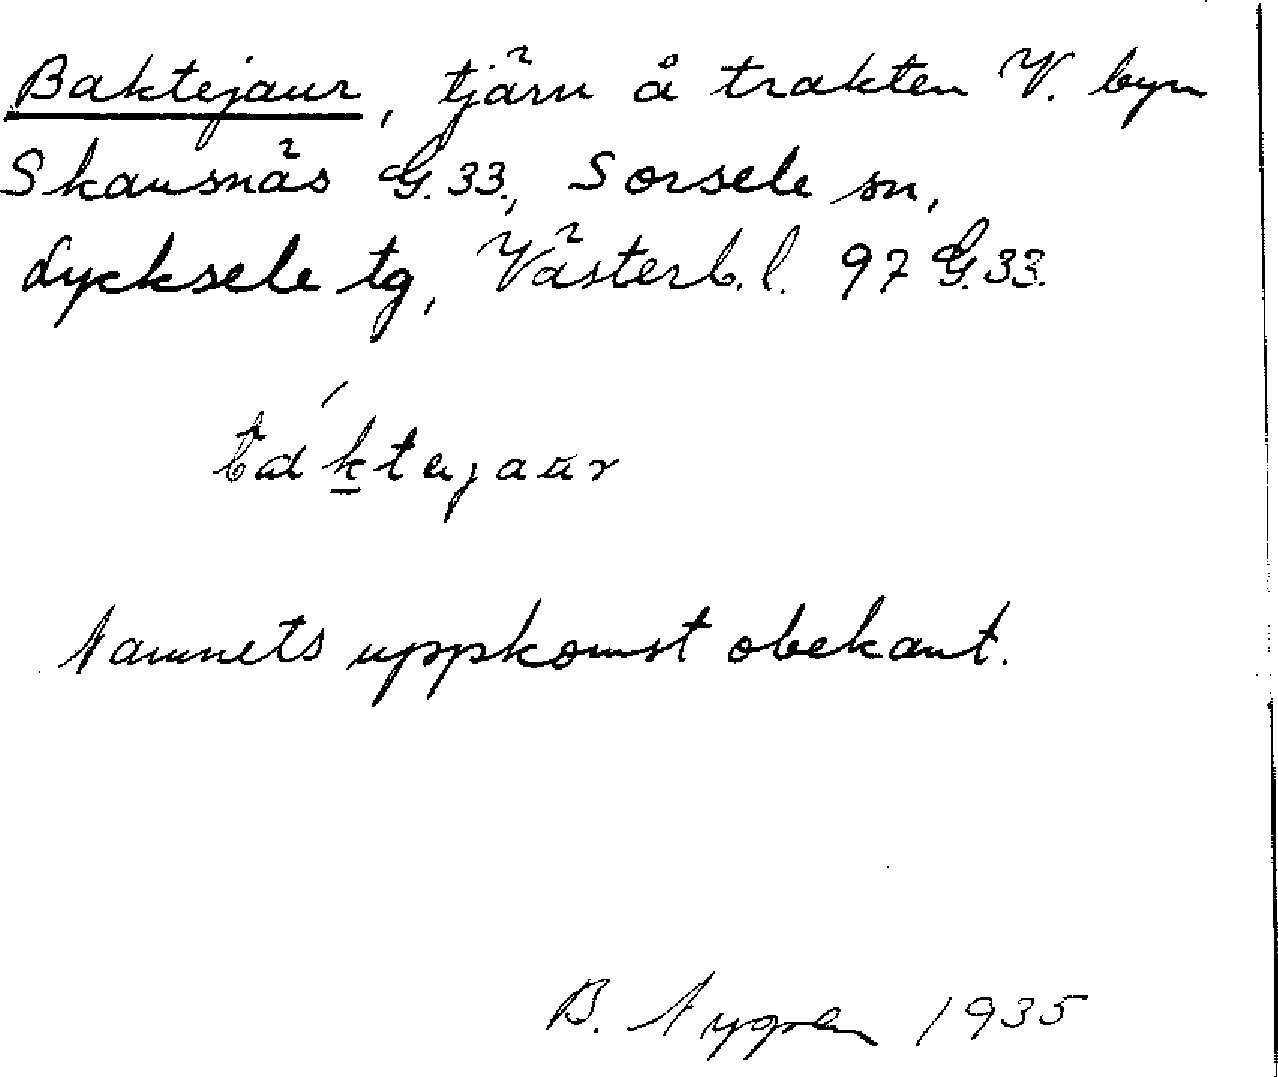 Baktejaur, tjärn å trakten V. byn
Skansnäs G.33., Sorsele sn,
Lycksele tg, Västerb. l. 97 G.33.
Namnets uppkomst obekant.
B. Nygren 1935